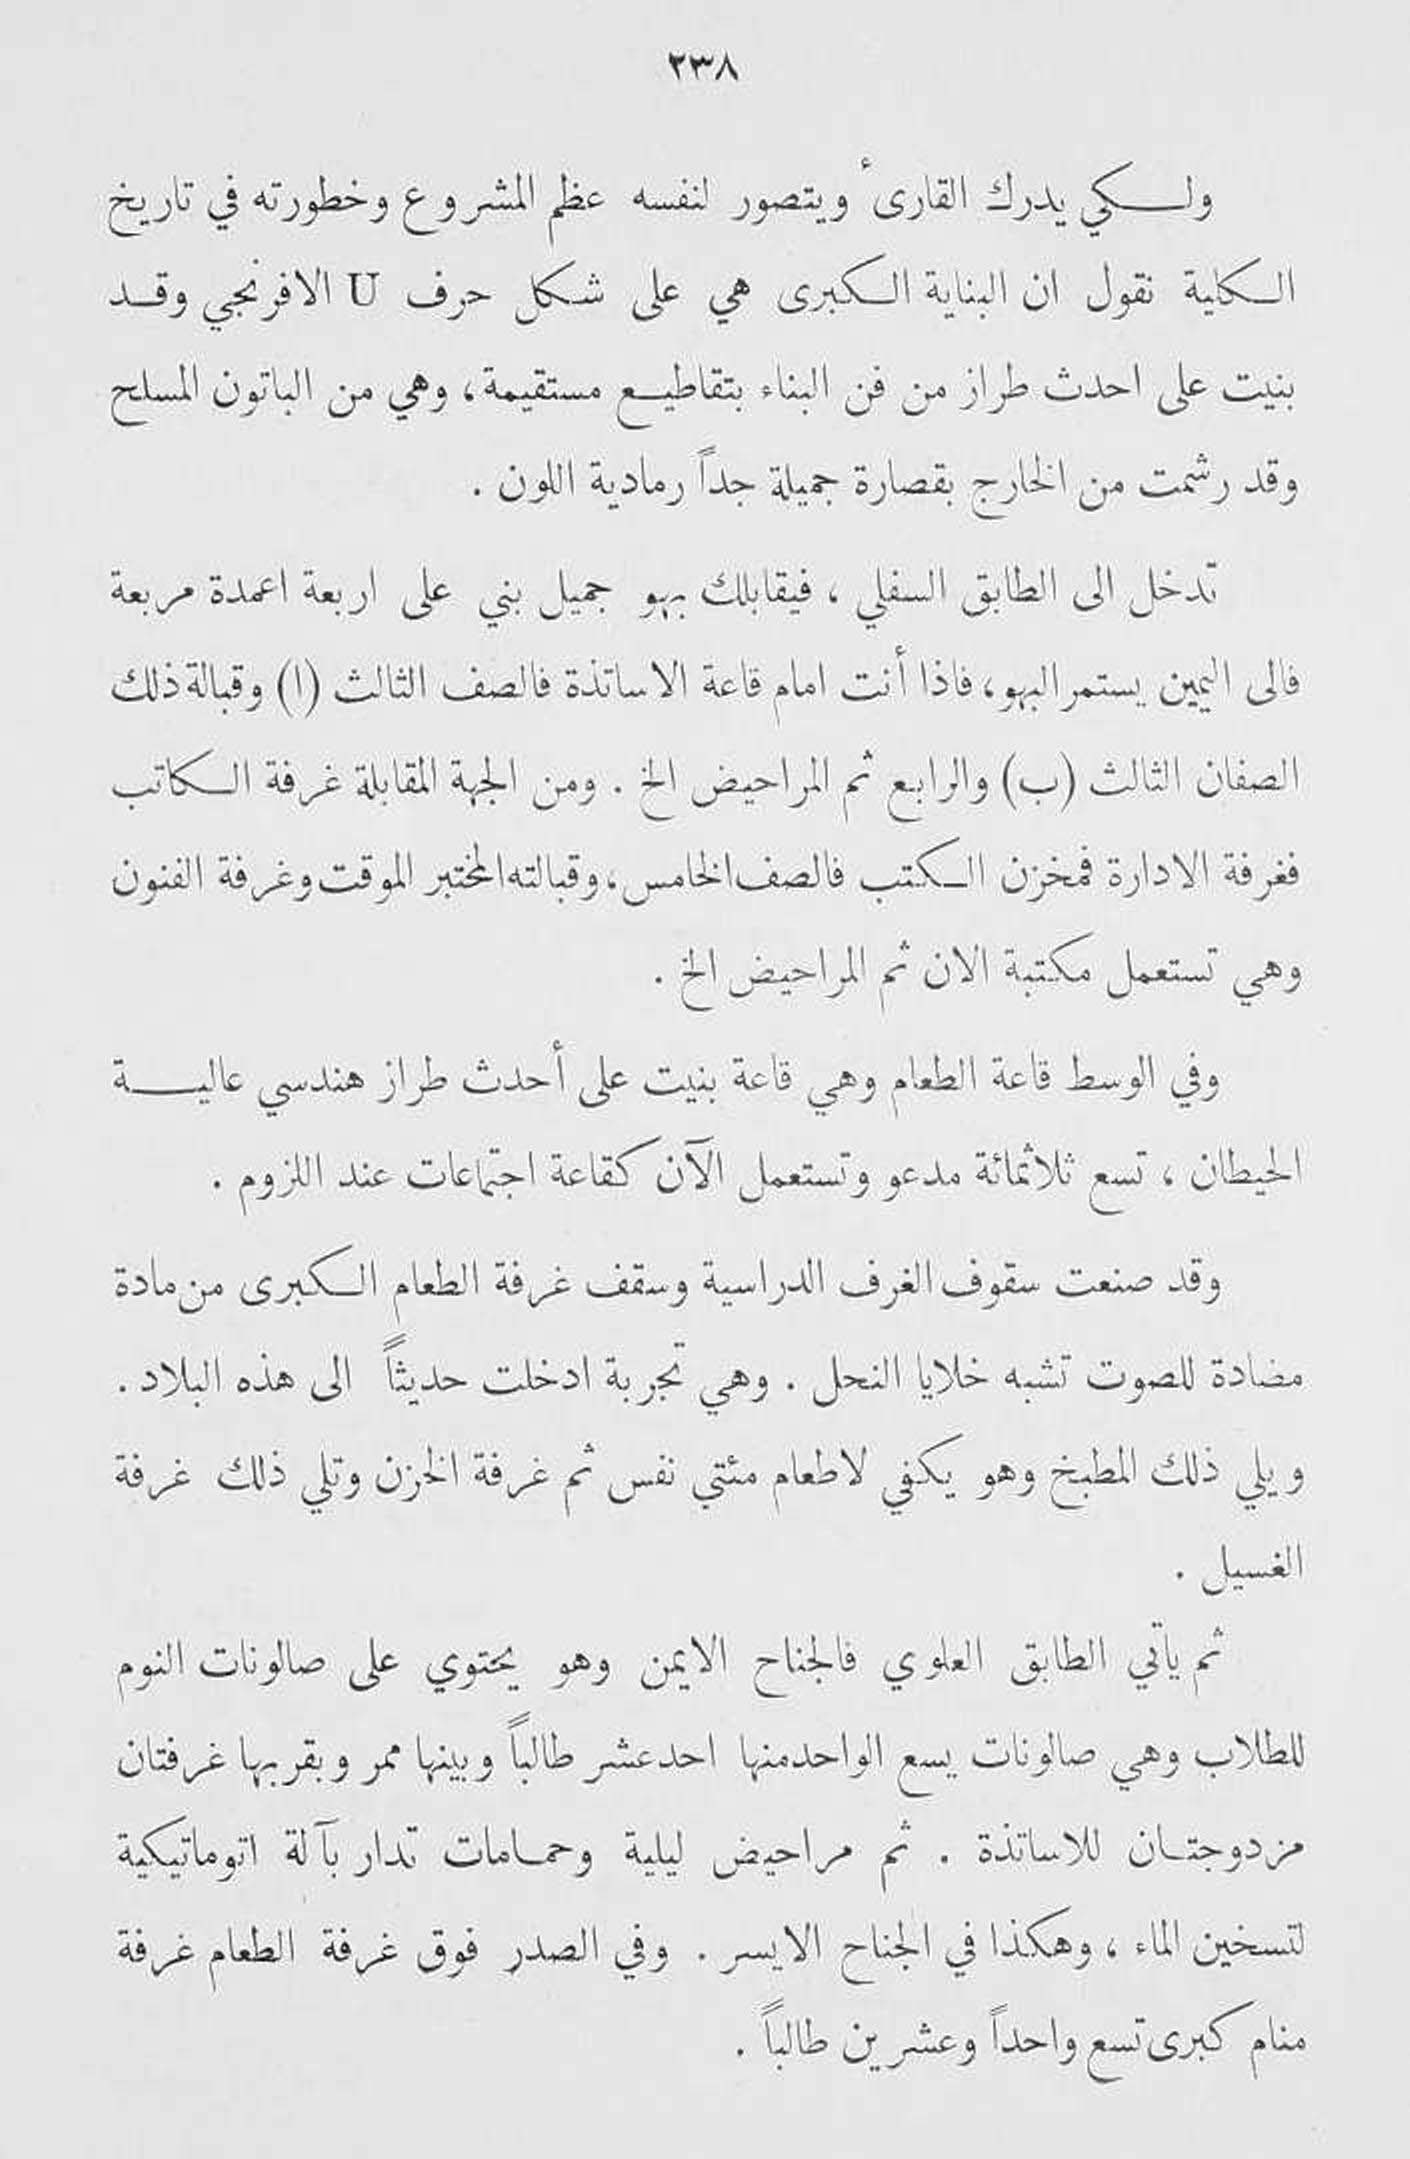 ٢٣٨
ولكي يدرك القارىء ويتصور لنفسه عظم المشروع وخطورته في تاريخ
الكلية نقول ان البناية الكبرى هي على شكل حرف U الافرنجي وقد
بنيت على احدث طراز من فن البناء بتقاطيع مستقيمة، وهي من الباتون المسلح
وقد رشمت من الخارج بقصارة جميلة جداً رمادية اللون .
تدخل الى الطابق السفلي ، فيقابلك بهو جميل بني على اربعة اعمدة مربعة
فالى اليمين يستمر البهو، فاذا أنت امام قاعة الاساتذة فالصف الثالث (ا) وقبالة ذلك
الصفان الثالث (ب) والرابع ثم المراحيض الخ . ومن الجهة المقابلة غرفة الكاتب
فغرفة الادارة فمخزن الكتب فالصف الخامس، وقبالته المختبر الموقت وغرفة الفنون
وهي تستعمل مكتبة الان ثم المراحيض الخ .
وفي الوسط قاعة الطعام وهي قاعة بنيت على أحدث طراز هندسي عالية
الحيطان ، تسع ثلاثمائة مدعو وتستعمل الآن كقاعة اجتماعات عند اللزوم .
وقد صنعت سقوف الغرف الدراسية وسقف غرفة الطعام الكبرى من مادة
مضادة للصوت تشبه خلايا النحل . وهي تجربة ادخلت حديثاً الى هذه البلاد .
ويلي ذلك المطبخ وهو يكفي لاطعام مئتي نفس ثم غرفة الخزن وتلي ذلك غرفة
الغسيل .
ثم يأتي الطابق العلوي فالجناح الايمن وهو يحتوي على صالونات النوم
للطلاب وهي صالونات يسع الواحد منها احد عشر طالباً وبينها ممر وبقربها غرفتان
مزدوجتان للاساتذة . ثم مراحيض ليلية وحمامات تدار بآلة اتوماتيكية
لتسخين الماء ، وهكذا في الجناح الايسر . وفي الصدر فوق غرفة الطعام غرفة
منام كبرى تسع واحداً وعشرين طالباً .